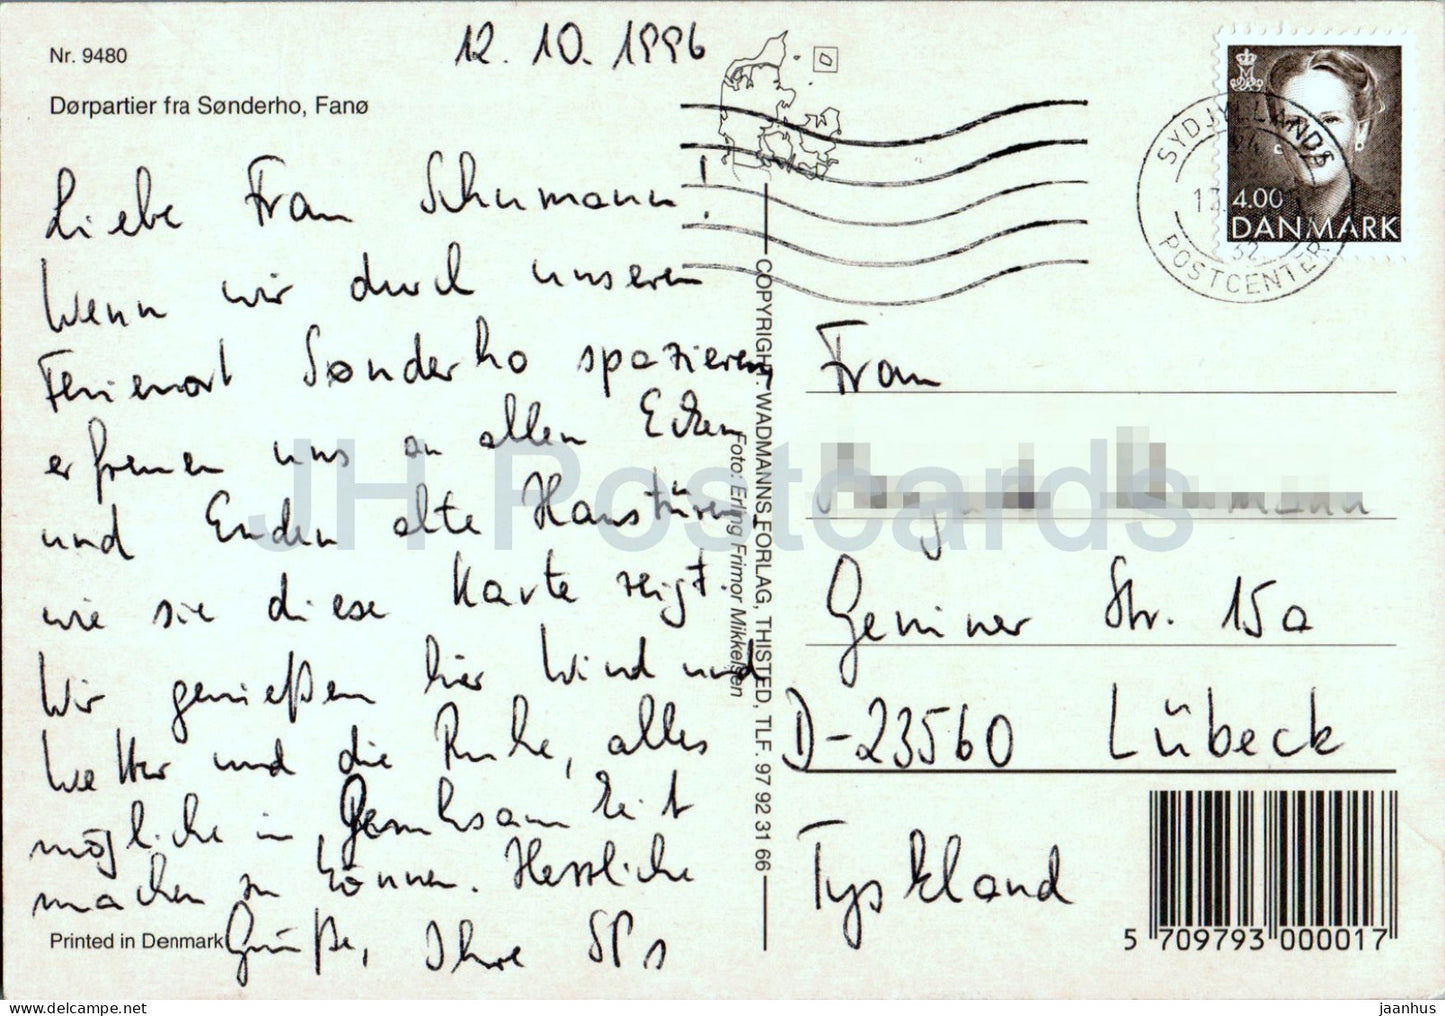 Nr. 9480
Dørpartier fra Sønderho, Fanø
12. 10. 1996
Liebe Frau Schumann!
Wenn wir durch unseren
Ferienort Sønderho spazieren,
erfreuen uns an allen Ecken
und Enden alte Haustüren,
wie sie diese Karte zeigt.
Wir genießen hier Wind und
Wetter und die Ruhe, alles
mögliche in Gemeinsamkeit
machen zu können. Herzliche
Grüße, Ihre SPs
Printed in Denmark
COPYRIGHT: WADMANNS FORLAG, THISTED, TLF. 97 92 31 66
Foto: Erling Frimor Mikkelsen
SYDJYLLANDS
POSTCENTER
4.00
DANMARK
Frau
Geniner Str. 15a
D-23560 Lübeck
Tyskland
5 709793 000017
JH Postcards
delcampe.net
jaanhus